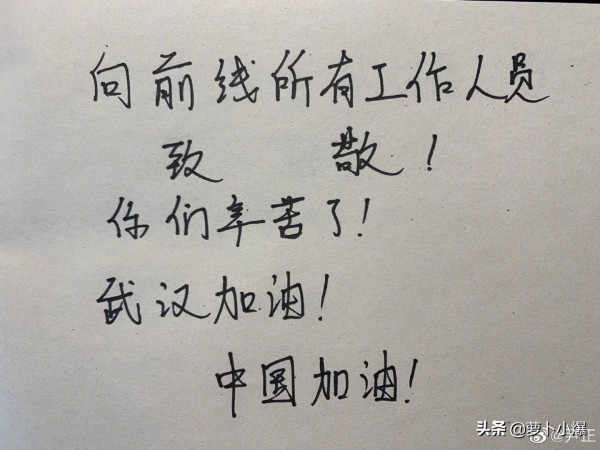 向前线所有工作人员
致 敬！
你们辛苦了！
武汉加油！
中国加油！
头条 @萝卜小爆
@尹正